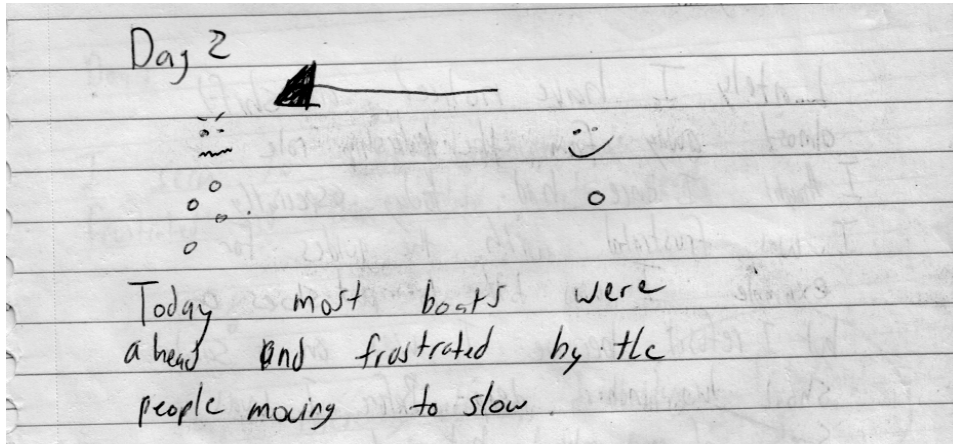 Day 2
Today most boats were
ahead and frustrated by the
people moving to slow.